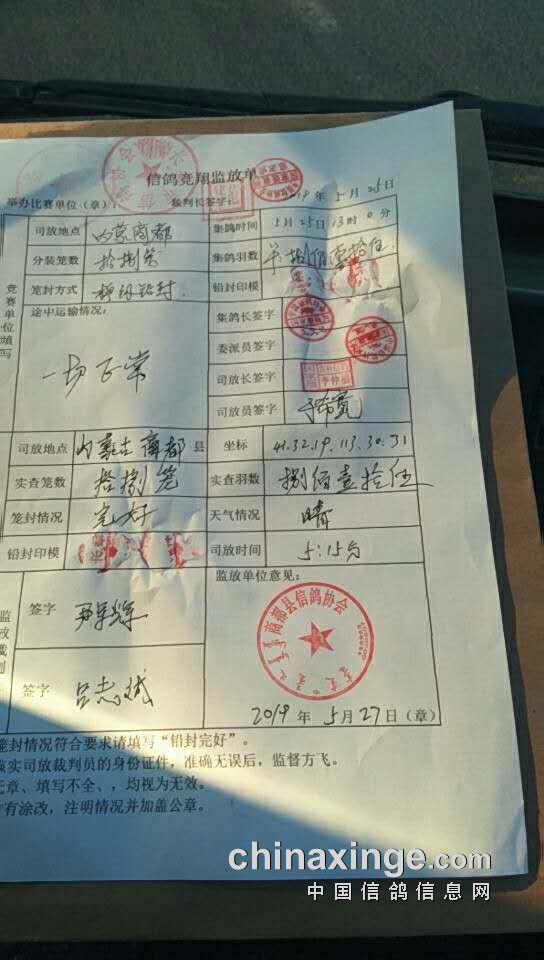 信鸽竞翔监放单
举办比赛单位（章） 裁判长签字： 2019年5月25日
司放地点 内蒙商都 集鸽时间 5月25日13时0分
分装笼数 拾捌笼 集鸽羽数 捌佰壹拾伍
笼封方式 铅封 铅封印模
竞赛单位填写
途中运输情况： 集鸽长签字
一切正常 委派员签字
司放长签字
司放员签字
司放地点 内蒙古商都县 坐标 41.32.19.113.30.31
实查笼数 拾捌笼 实查羽数 捌佰壹拾伍
笼封情况 完好 天气情况 晴
铅封印模 司放时间 5:15分
监放单位意见：
签字
商都县信鸽协会
签字 吕志斌
2019年5月27日（章）
笼封情况符合要求请填写“铅封完好”。
实司放裁判员的身份证件，准确无误后，监督方飞。
无章、填写不全、，均视为无效。
有涂改，注明情况并加盖公章。
chinaxinge.com
中国信鸽信息网